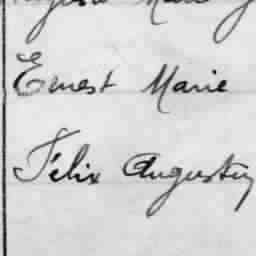 Ernest Marie
Félix Augustin